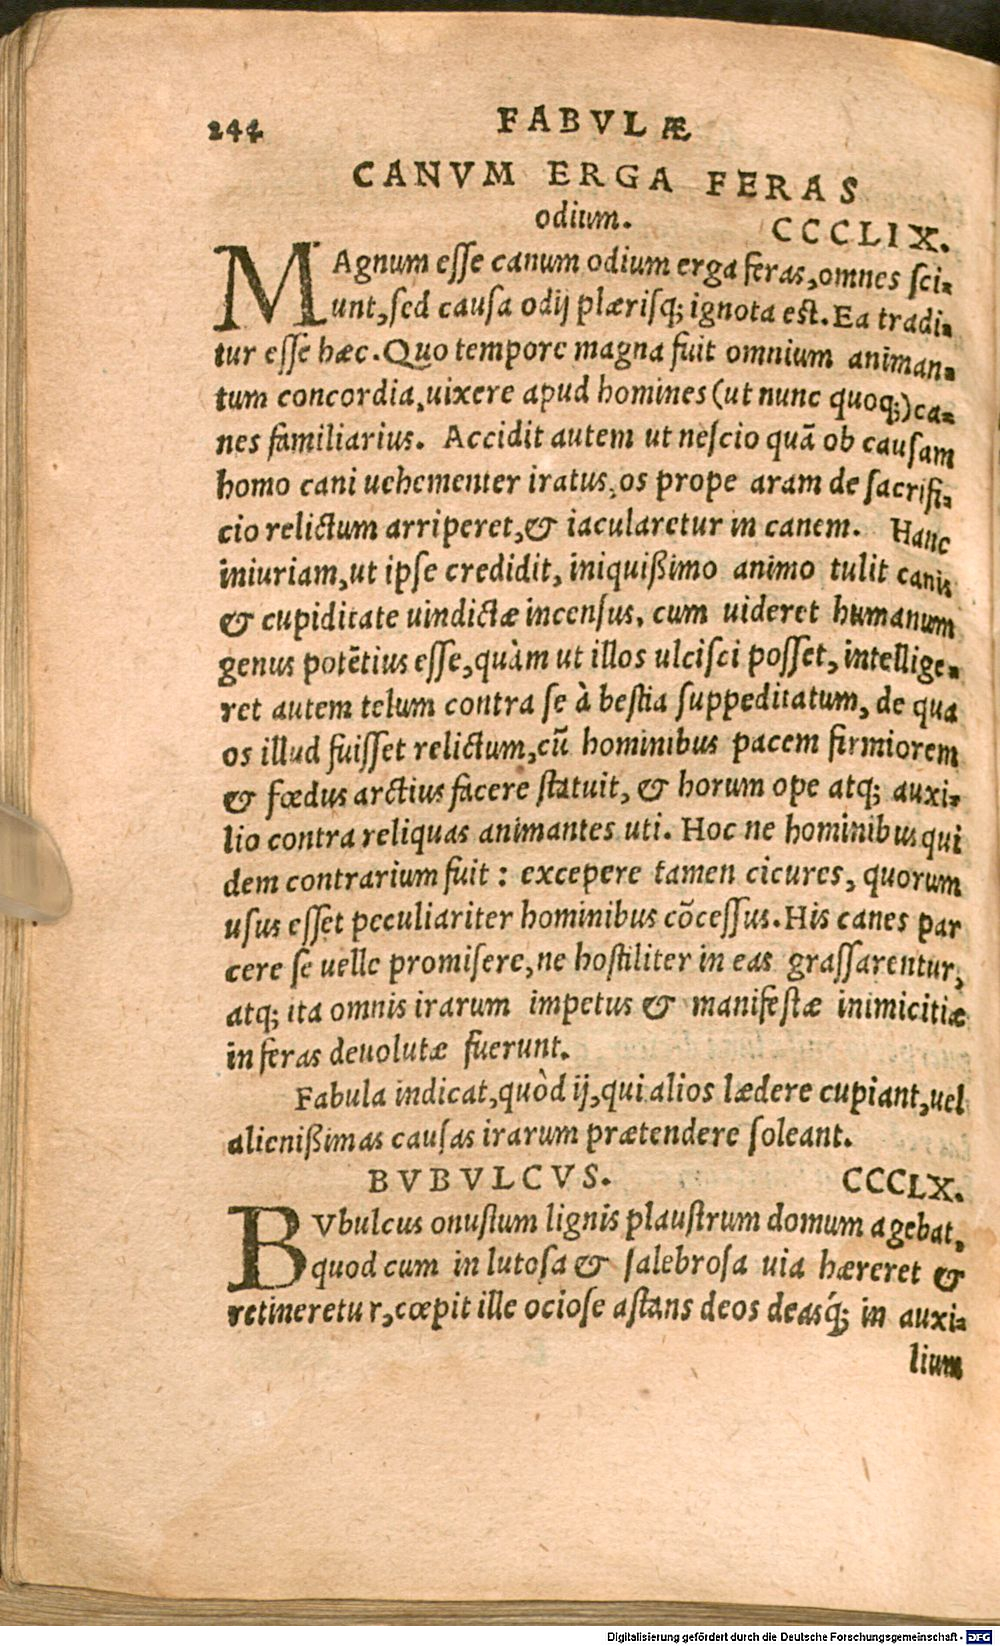 244 FABVLÆ
CANVM ERGA FERAS
odium. CCCLIX.
MAgnum esse canum odium erga feras, omnes sci-
unt, sed causa odij plærisq; ignota est. Ea tradi-
tur esse hæc. Quo tempore magna fuit omnium animan-
tum concordia, uixere apud homines (ut nunc quoq;) ca-
nes familiarius. Accidit autem ut nescio quā ob causam
homo cani uehementer iratus, os prope aram de sacrifi-
cio relictum arriperet, & iacularetur in canem. Hanc
iniuriam, ut ipse credidit, iniquißimo animo tulit canis
& cupiditate uindictæ incensus, cum uideret humanum
genus potētius esse, quàm ut illos ulcisci posset, intellige-
ret autem telum contra se à bestia suppeditatum, de qua
os illud fuisset relictum, cū hominibus pacem firmiorem
& fœdus arctius facere statuit, & horum ope atq; auxi-
lio contra reliquas animantes uti. Hoc ne hominibus qui
dem contrarium fuit: excepere tamen cicures, quorum
usus esset peculiariter hominibus cōcessus. His canes par
cere se uelle promisere, ne hostiliter in eas grassarentur,
atq; ita omnis irarum impetus & manifestæ inimicitiæ
in feras deuolutæ fuerunt.
Fabula indicat, quòd ij, qui alios lædere cupiant, uel
alienißimas causas irarum prætendere soleant.
BVBVLCVS. CCCLX.
BVbulcus onustum lignis plaustrum domum agebat,
quod cum in lutosa & salebrosa uia hæreret &
retineretur, cœpit ille ociose astans deos deasq́; in auxi-
lium
Digitalisierung gefördert durch die Deutsche Forschungsgemeinschaft - DFG